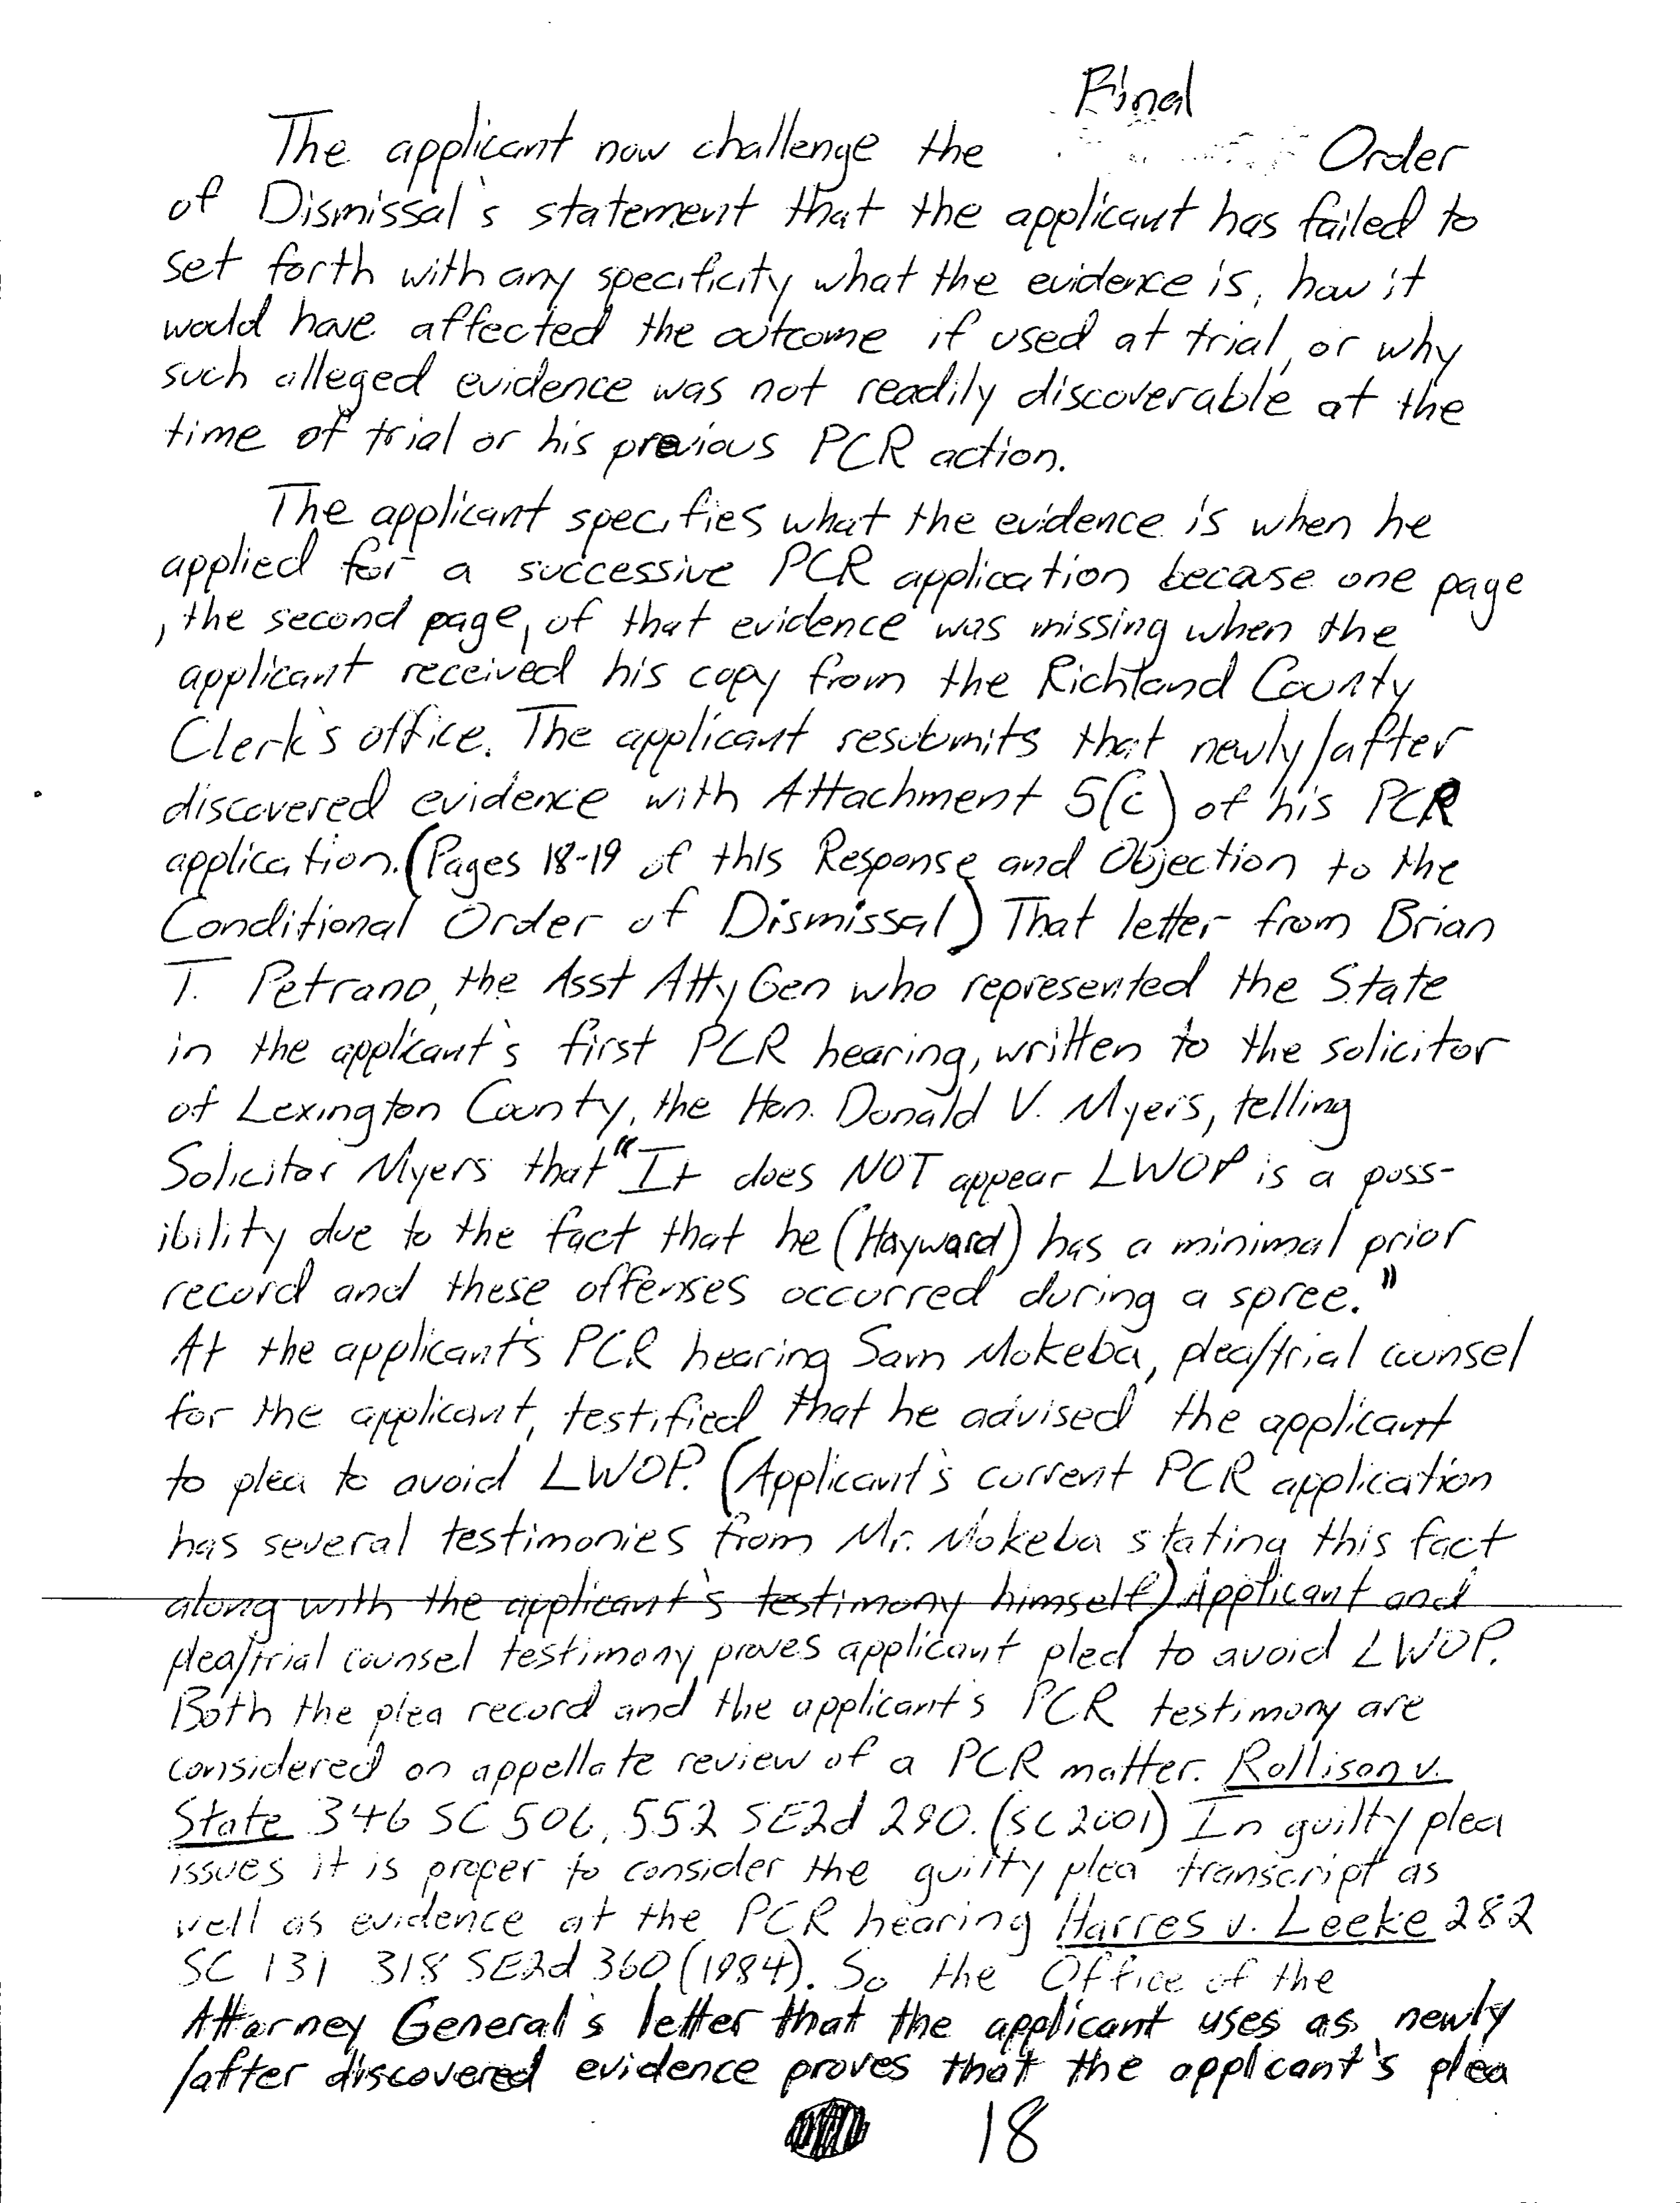 Final
The applicant now challenge the Order
of Dismissal's statement that the applicant has failed to
set forth with any specificity what the evidence is, how it
would have affected the outcome if used at trial, or why
such alleged evidence was not readily discoverable at the
time of trial or his previous PCR action.
The applicant specifies what the evidence is when he
applied for a successive PCR application because one page
, the second page, of that evidence was missing when the
applicant received his copy from the Richland County
Clerk's office. The applicant resubmits that newly/after
discovered evidence with Attachment 5(c) of his PCR
application. (Pages 18-19 of this Response and Objection to the
Conditional Order of Dismissal) That letter from Brian
T. Petrano, the Asst Atty Gen who represented the State
in the applicant's first PCR hearing, written to the solicitor
of Lexington County, the Hon. Donald V. Myers, telling
Solicitor Myers that "It does NOT appear LWOP is a poss-
ibility due to the fact that he (Hayward) has a minimal prior
record and these offenses occurred during a spree."
At the applicant's PCR hearing Sam Mokeba, plea/trial counsel
for the applicant, testified that he advised the applicant
to plea to avoid LWOP. (Applicant's current PCR application
has several testimonies from Mr. Mokeba stating this fact
along with the applicant's testimony himself) Applicant and
plea/trial counsel testimony proves applicant pled to avoid LWOP.
Both the plea record and the applicant's PCR testimony are
considered on appellate review of a PCR matter. Rollison v.
State 346 SC 506, 552 SE2d 290. (SC 2001) In guilty plea
issues it is proper to consider the guilty plea transcript as
well as evidence at the PCR hearing Harres v. Leeke 282
SC 131 318 SE2d 360 (1984). So the Office of the
Attorney General's letter that the applicant uses as newly
/after discovered evidence proves that the applicant's plea
18